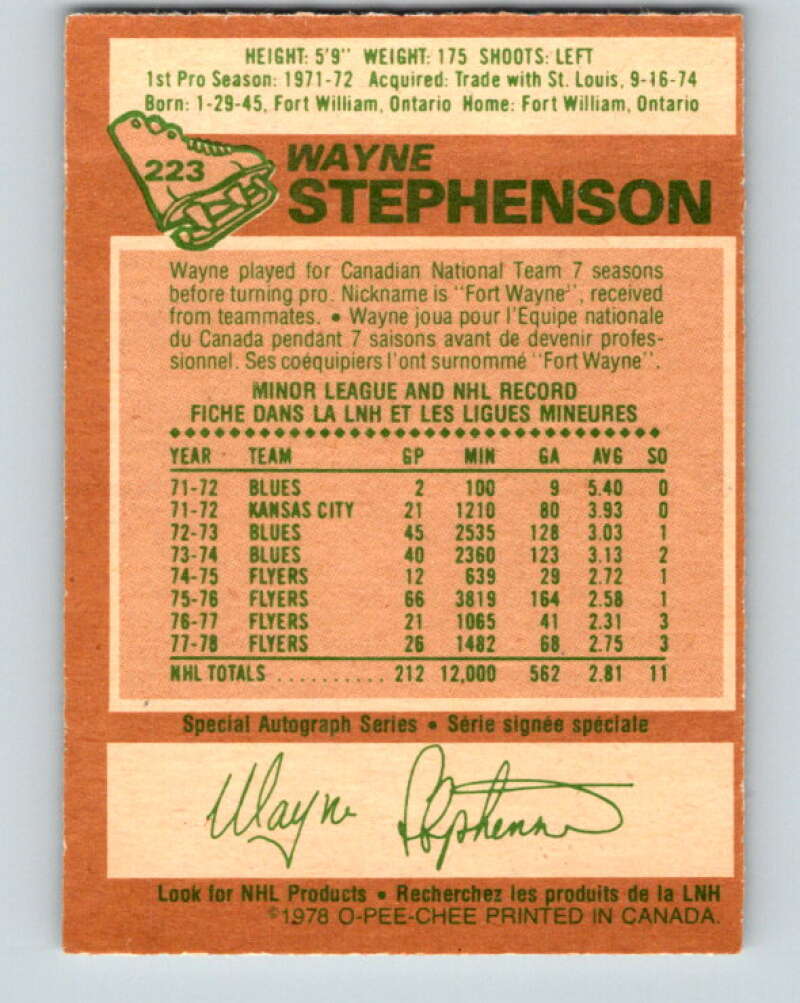 HEIGHT: 5'9" WEIGHT: 175 SHOOTS: LEFT
1st Pro Season: 1971-72 Acquired: Trade with St. Louis, 9-16-74
Born: 1-29-45, Fort William, Ontario Home: Fort William, Ontario
223
WAYNE
STEPHENSON
Wayne played for Canadian National Team 7 seasons
before turning pro. Nickname is "Fort Wayne", received
from teammates. • Wayne joua pour l'Equipe nationale
du Canada pendant 7 saisons avant de devenir profes-
sionnel. Ses coéquipiers l'ont surnommé "Fort Wayne".
MINOR LEAGUE AND NHL RECORD
FICHE DANS LA LNH ET LES LIGUES MINEURES
YEAR TEAM GP MIN GA AVG SO
71-72 BLUES 2 100 9 5.40 0
71-72 KANSAS CITY 21 1210 80 3.93 0
72-73 BLUES 45 2535 128 3.03 1
73-74 BLUES 40 2360 123 3.13 2
74-75 FLYERS 12 639 29 2.72 1
75-76 FLYERS 66 3819 164 2.58 1
76-77 FLYERS 21 1065 41 2.31 3
77-78 FLYERS 26 1482 68 2.75 3
NHL TOTALS .......... 212 12,000 562 2.81 11
Special Autograph Series • Série signée spéciale
Wayne Stephenson
Look for NHL Products • Recherchez les produits de la LNH
©1978 O-PEE-CHEE PRINTED IN CANADA.